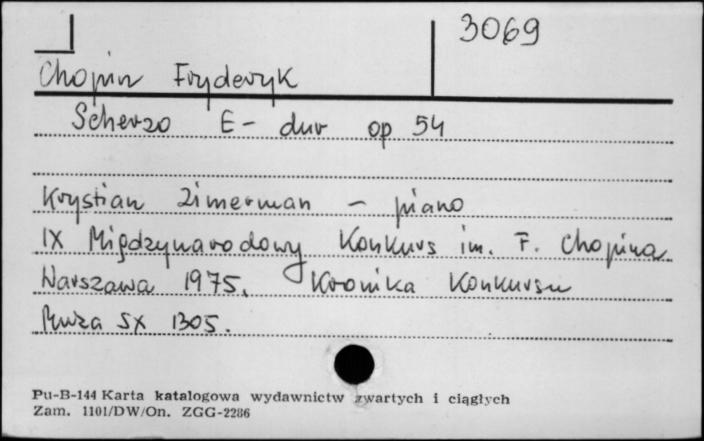 3069
Chopin Fryderyk
Scherzo E-dur op 54
Krystian Zimerman - piano
IX Międzynarodowy Konkurs im. F. Chopina
Warszawa 1975. Kronika Konkursu
Muza SX 1305.
Pu-B-144 Karta katalogowa wydawnictw zwartych i ciągłych
Zam. 1101/DW/On. ZGG-2286